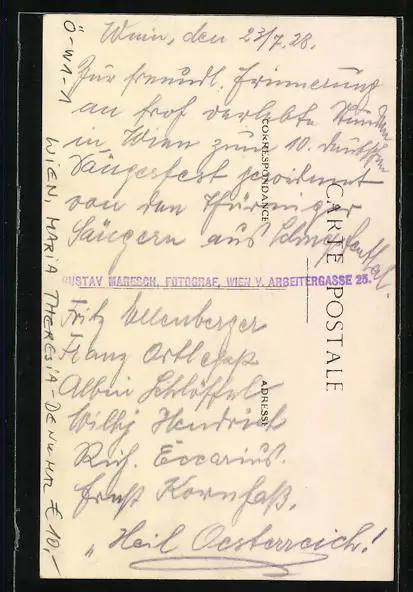 Wien, den 23/7.28.
Zur freundl. Erinnerung
an froh verlebte Stunden
in Wien zum 10. deutschen
Sängerfest gewidmet
von den Thüringer
Sängern aus
GUSTAV MARESCH, FOTOGRAF, WIEN V. ARBEITERGASSE 25.
Fritz Ellenberger
Franz
Albin Schlöffel
Willy Hendrich
Rich. Eccarius.
Ernst Kornfaß.
„Heil Oesterreich!
CARTE POSTALE
CORRESPONDANCE
ADRESSE
Ö-W1-1
WIEN, MARIA THERESIA-DENKMAL € 10,-